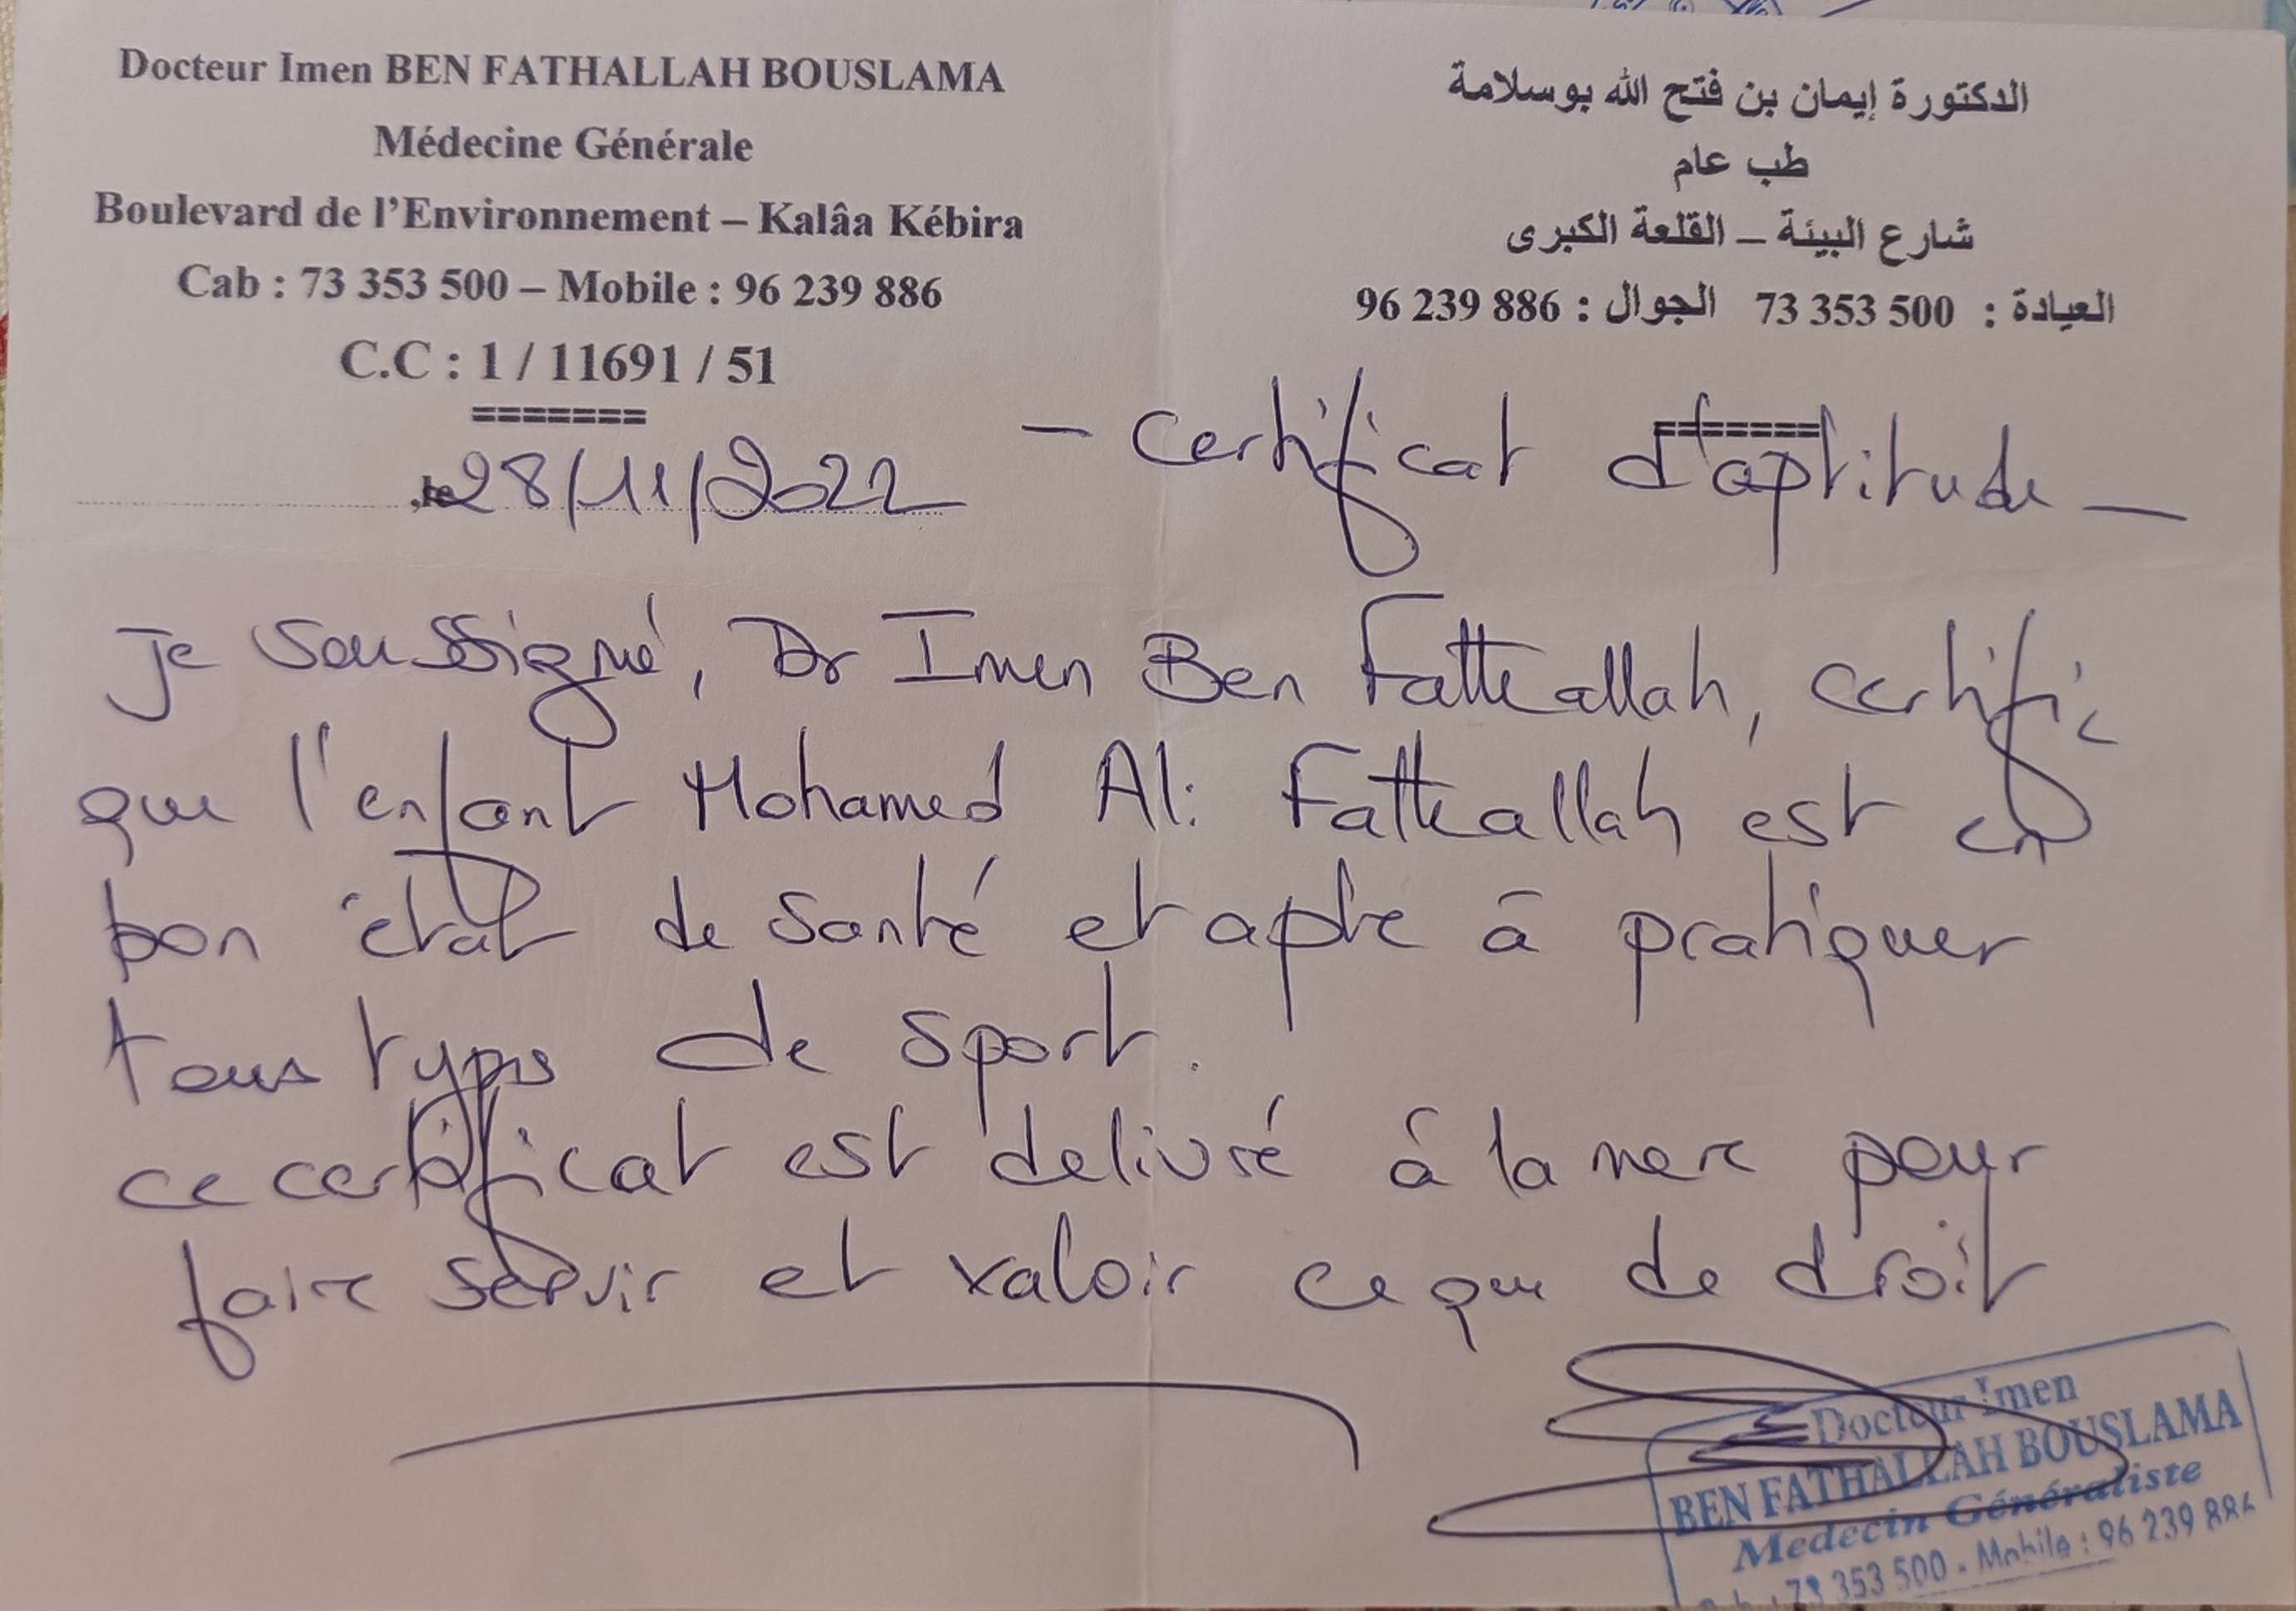 Docteur Imen BEN FATHALLAH BOUSLAMA
Médecine Générale
Boulevard de l'Environnement – Kalâa Kébira
Cab : 73 353 500 – Mobile : 96 239 886
C.C : 1 / 11691 / 51
=======
الدكتورة إيمان بن فتح الله بوسلامة
طب عام
شارع البيئة – القلعة الكبرى
العيادة : 73 353 500 الجوال : 96 239 886
=======
,le 28/11/2022
— Certificat d'aptitude —
Je soussigné, Dr Imen Ben Fathallah, certifie
que l'enfant Mohamed Ali Fathallah est en
bon état de santé et apte à pratiquer
tous types de sport.
ce certificat est delivré à la mere pour
faire servir et valoir ce que de droit
Docteur Imen
BEN FATHALLAH BOUSLAMA
Medecin Généraliste
73 353 500 - Mobile : 96 239 886